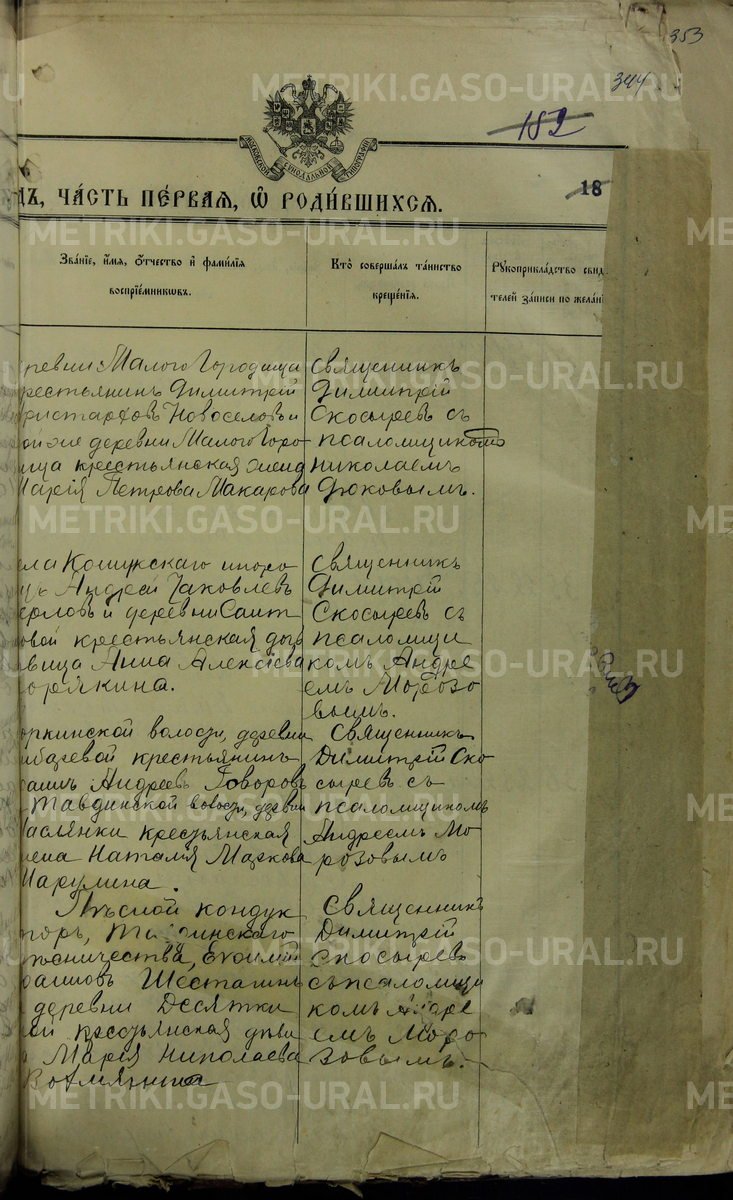 353
344
182
МОСКОВСКОЙ СѴНОДАЛЬНОЙ ТИПОГРАФІИ
ДЪ, ЧА́СТЬ ПЕ́РВАЯ, Ѽ РОДИ́ВШИХСЯ.
18
Зва́нїе, и҆́мя, ѻ҆́тчество и҆ фами́лїя
воспрїе́мникѡвъ.
Кто̀ соверша́лъ та́инство
креще́нїя.
Рꙋкоприкла́дство свид
телей за́писи по жела́нї
ревни Малого Городища
рестьянинъ Димитрій
ристарховъ Новоселовъ и
деревни Малого Горо
ища крестьянская жена
Марія Петрова Макарова
Священникъ
Димитрій
Скосыревъ съ
псаломщикомъ
Николаемъ
Дюковымъ.
ела Кошукскаго
Андрей Яковлевъ
и деревни Саит
овой крестьянская дѣв
вица Анна Алексѣева
орякина.
Священникъ
Димитрій
Скосыревъ съ
псаломщи
комъ Андре
емъ Морозо
вымъ.
оркинской волости, деревни
баревой крестьянинъ
Андреевъ Говоровъ
Тавдинской волости, деревни
Маслянки крестьянская
жена Наталія Маркова
Марулина.
Священникъ
Димитрій Ско
сыревъ съ
псаломщикомъ
Андреемъ Мо
розовымъ
Лѣсной кондук
торъ, Тавдинскаго
лѣсничества, Ефимій
Шесталинъ
деревни Десятки
ой крестьянская дѣви
Марія Николаева
Вотмянина
Священникъ
Димитрій
Скосыревъ
съ псаломщи
комъ Андре
емъ Моро
зовымъ.
METRIKI.GASO-URAL.RU